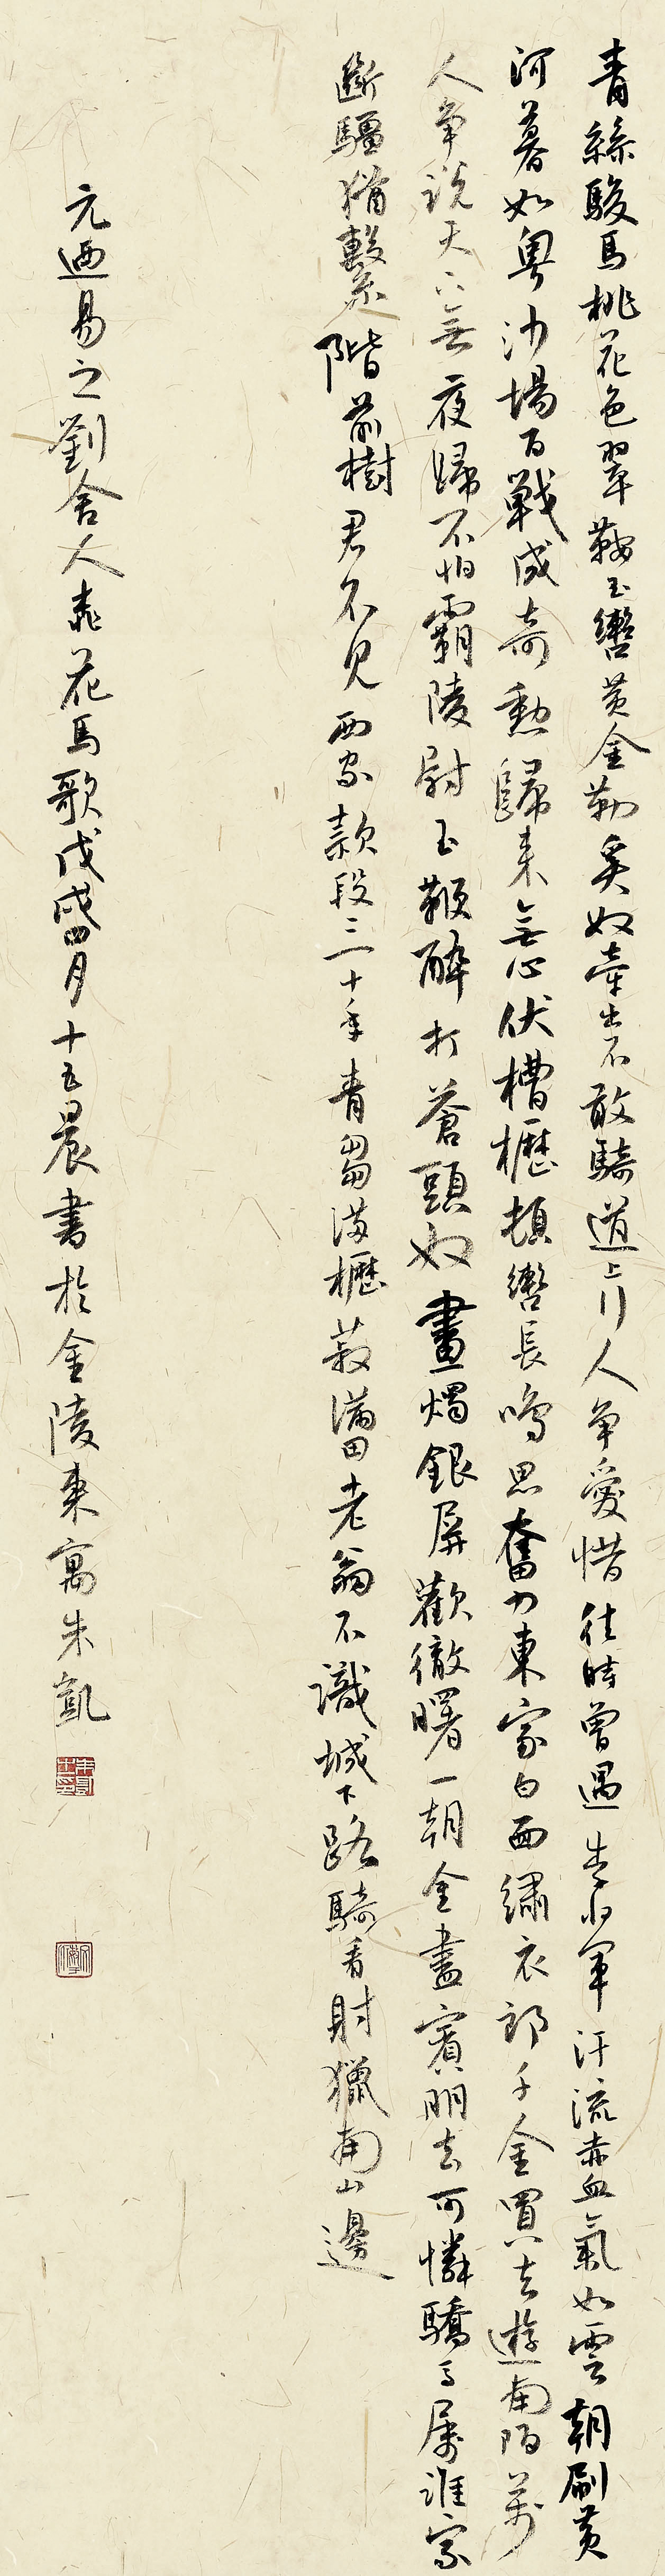 青絲駿馬桃花色翠鞍玉轡黃金勒奚奴牽出不敢騎道上行人爭愛惜往時曾遇李將軍汗流赤血氣如雲朝刷黃
河暮如粵沙場百戰成奇勳歸來無心伏槽櫪頓轡長鳴思奮力東家白面繡衣郎千金買去遊南陌萬
人爭說天下無夜歸不怕霸陵尉玉鞭醉打蒼頭奴畫燭銀屏歡徹曙一朝金盡賓朋去可憐驕馬屬誰家
斷韁猶繫階前樹君不見西家款段三十年青芻滿櫪菽滿田老翁不識城下路騎看射獵南山邊
元迺易之劉舍人桃花馬歌戊戌四月十五晨書於金陵東寓朱凱